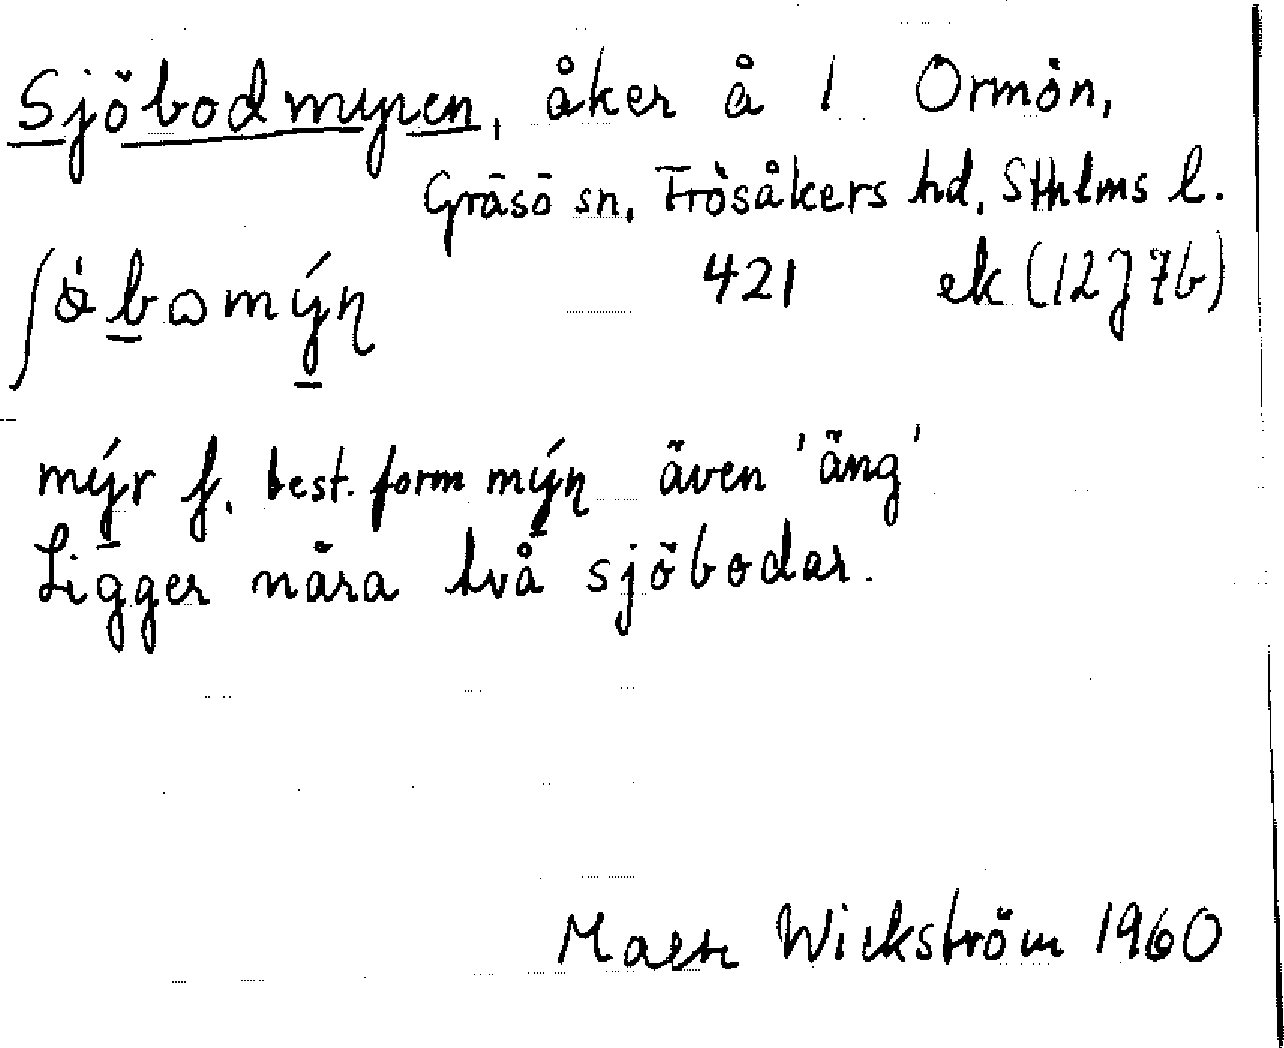 Sjöbodmyren, åker å 1 Örmön,
Gräsö sn, Frösåkers hd, Sthlms l.
421 ek (12J7b)
mýr f. best. form mýn även 'äng'
Ligger nära två sjöbodar.
Wickström 1960